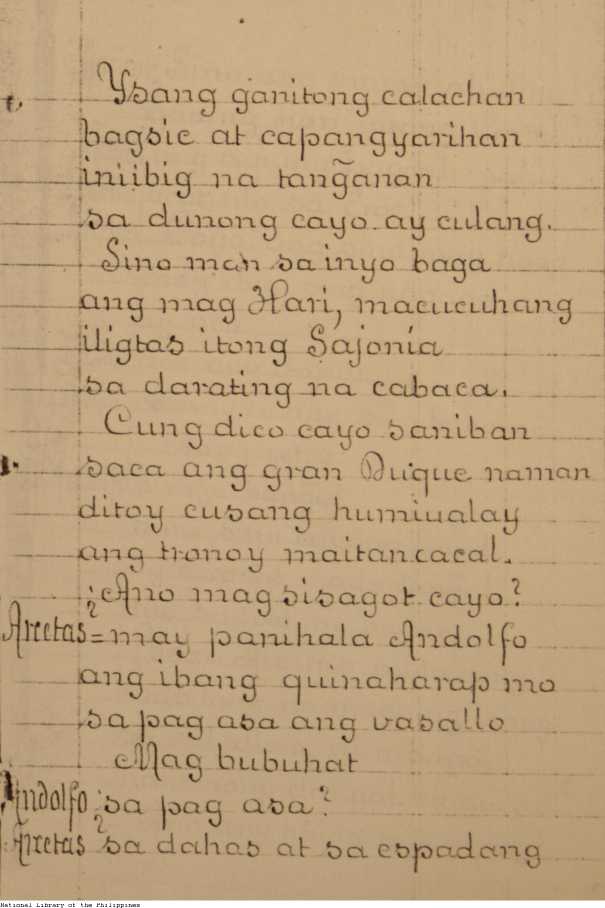 Ysang ganitong calachan
bagsic at capangyarihan
iniibig na tang̃anan
sa dunong cayo ay culang.
Sino man sa inyo baga
ang mag Hari, macucuhang
iligtas itong Sajonía
sa darating na cabaca.
Cung dico cayo saniban
saca ang gran Duque naman
ditoy cusang humiualay
ang tronoy maitancacal.
¿Ano mag sisagot cayo?
Arcetas = may panihala Andolfo
ang ibang quinaharap mo
sa pag asa ang vasallo
Mag bubuhat
Andolfo ¿sa pag asa?
Arcetas sa dahas at sa espadang
National Library of the Philippines